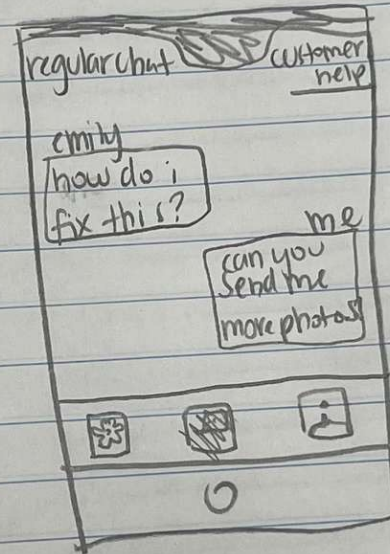 regular chat
customer
help
emily
how do i
fix this?
me
can you
send me
more photos